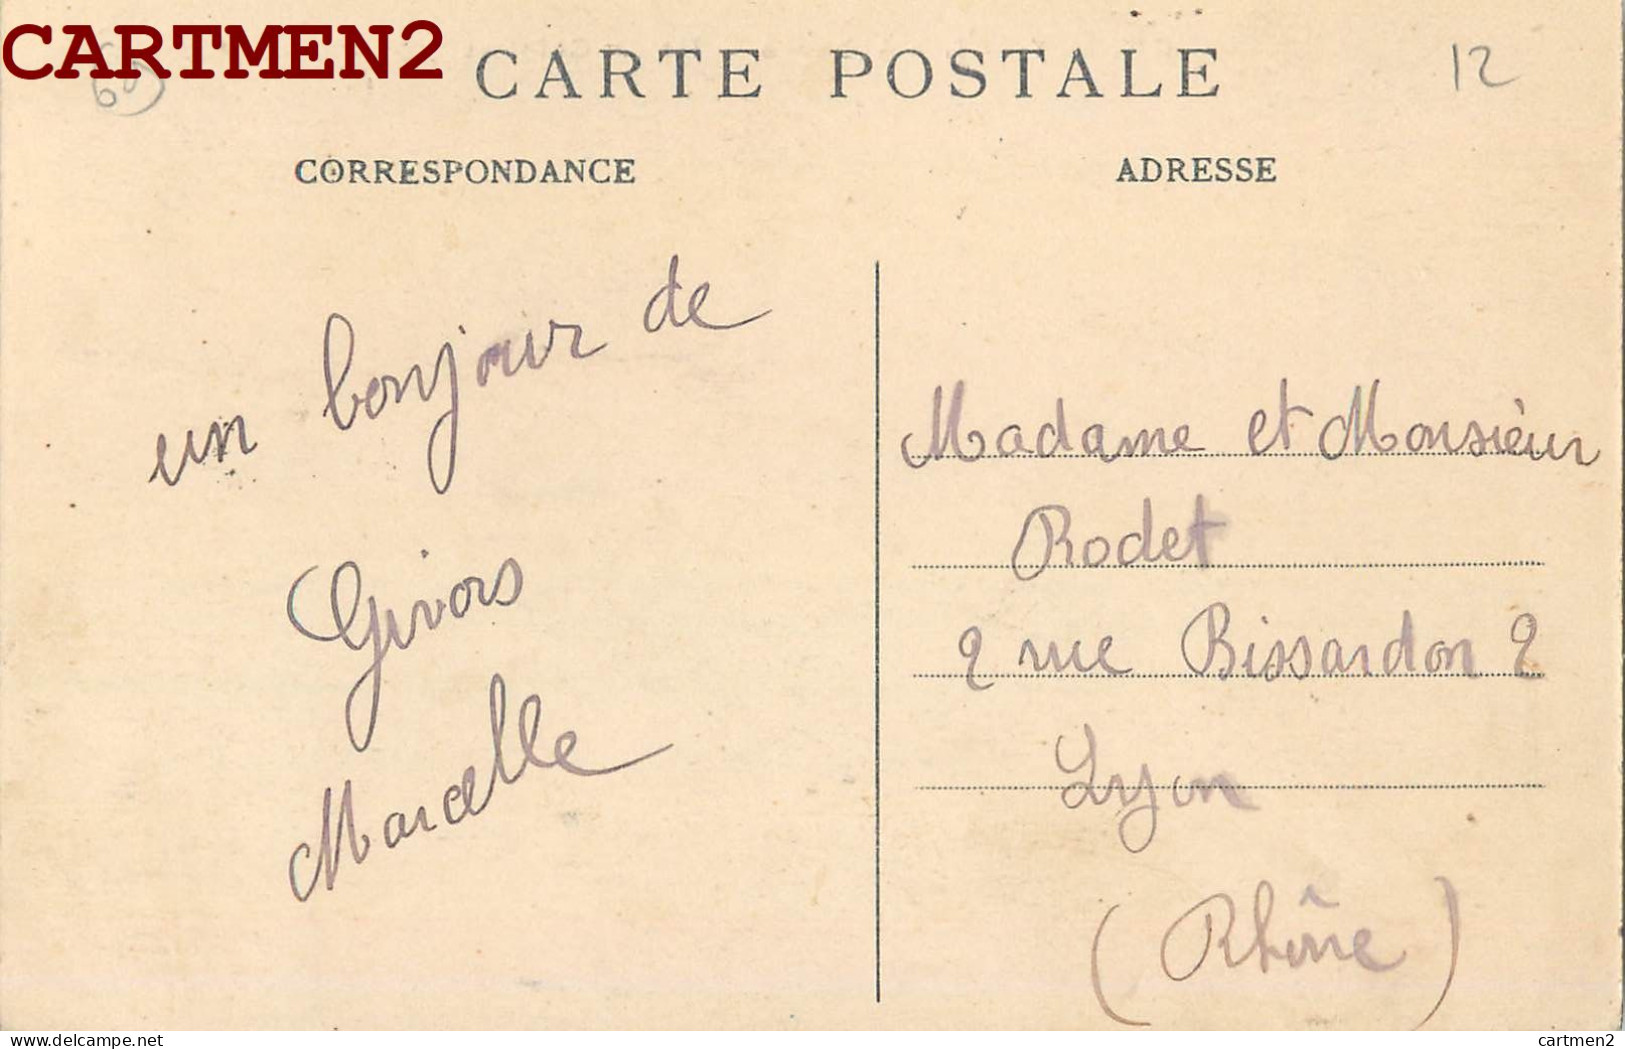 CARTMEN2
CARTE POSTALE
12
69
CORRESPONDANCE
ADRESSE
un bonjour de
Givors
Marcelle
Madame et Monsieur
Rodet
2 rue Bissardon 2
Lyon
(Rhône)
delcampe.net
cartmen2